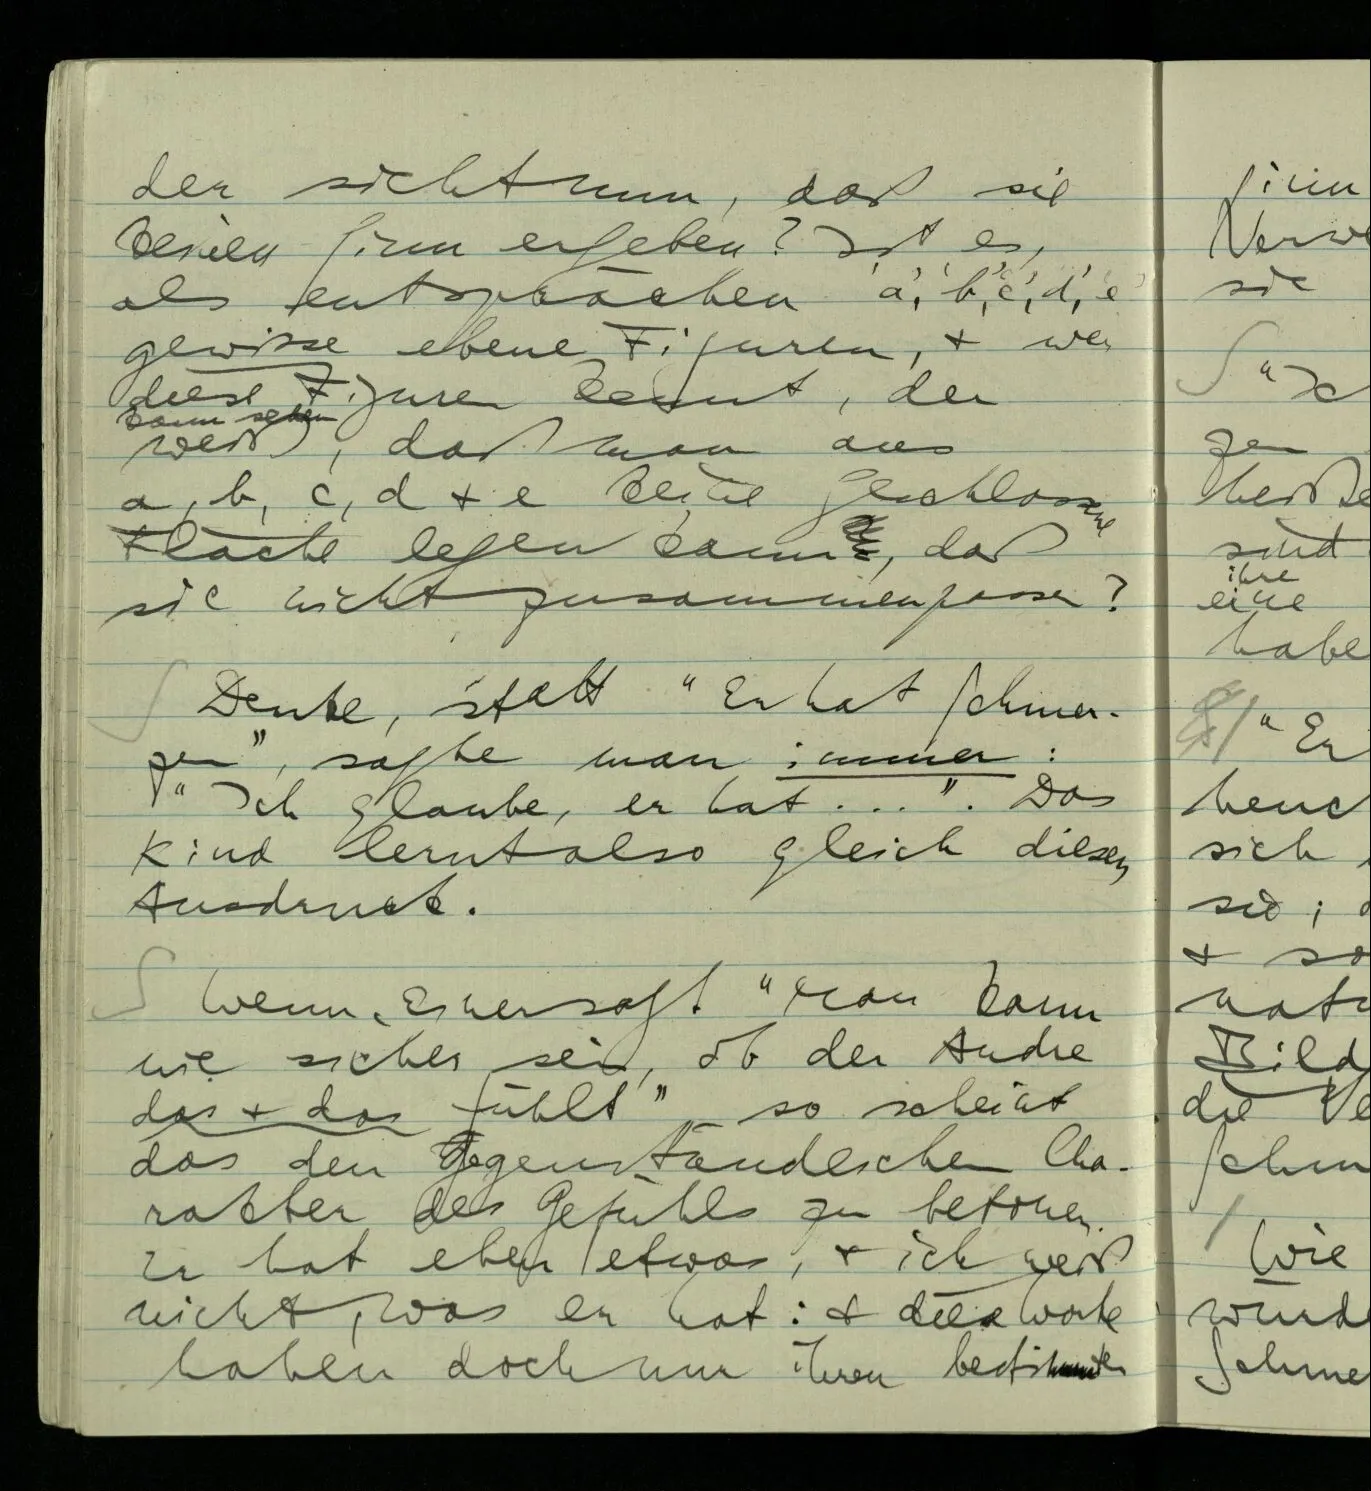 der sieht nun, daß sie
keinen Sinn ergeben? Ist es,
als entsprächen 'a', 'b', 'c', 'd', 'e'
gewisse ebene Figuren, & wer
diese Figuren kennt, der
kann sehen
weiß, daß man aus
a, b, c, d & e keine geschlossene
Fläche legen kann, daß
sie nicht zusammenpassen?
∫ Denke, statt "Er hat Schmer-
zen", sagte man immer:
"Ich glaube, er hat ...". Das
Kind lernt also gleich diesen
Ausdruck.
∫ Wenn Einer sagt "man kann
nie sicher sein, ob der Andre
das & das fühlt" so scheint
das den gegenständlichen Cha-
rakter des Gefühls zu betonen.
Er hat eben etwas, & ich weiß
nicht, was er hat: & diese Worte
haben doch nur ihren bestimmten
Sinn
sie
∫ "Ich
zen
sind
ihre
eine
habe
"Er
sich
sie;
& so
Bild
die
Wie